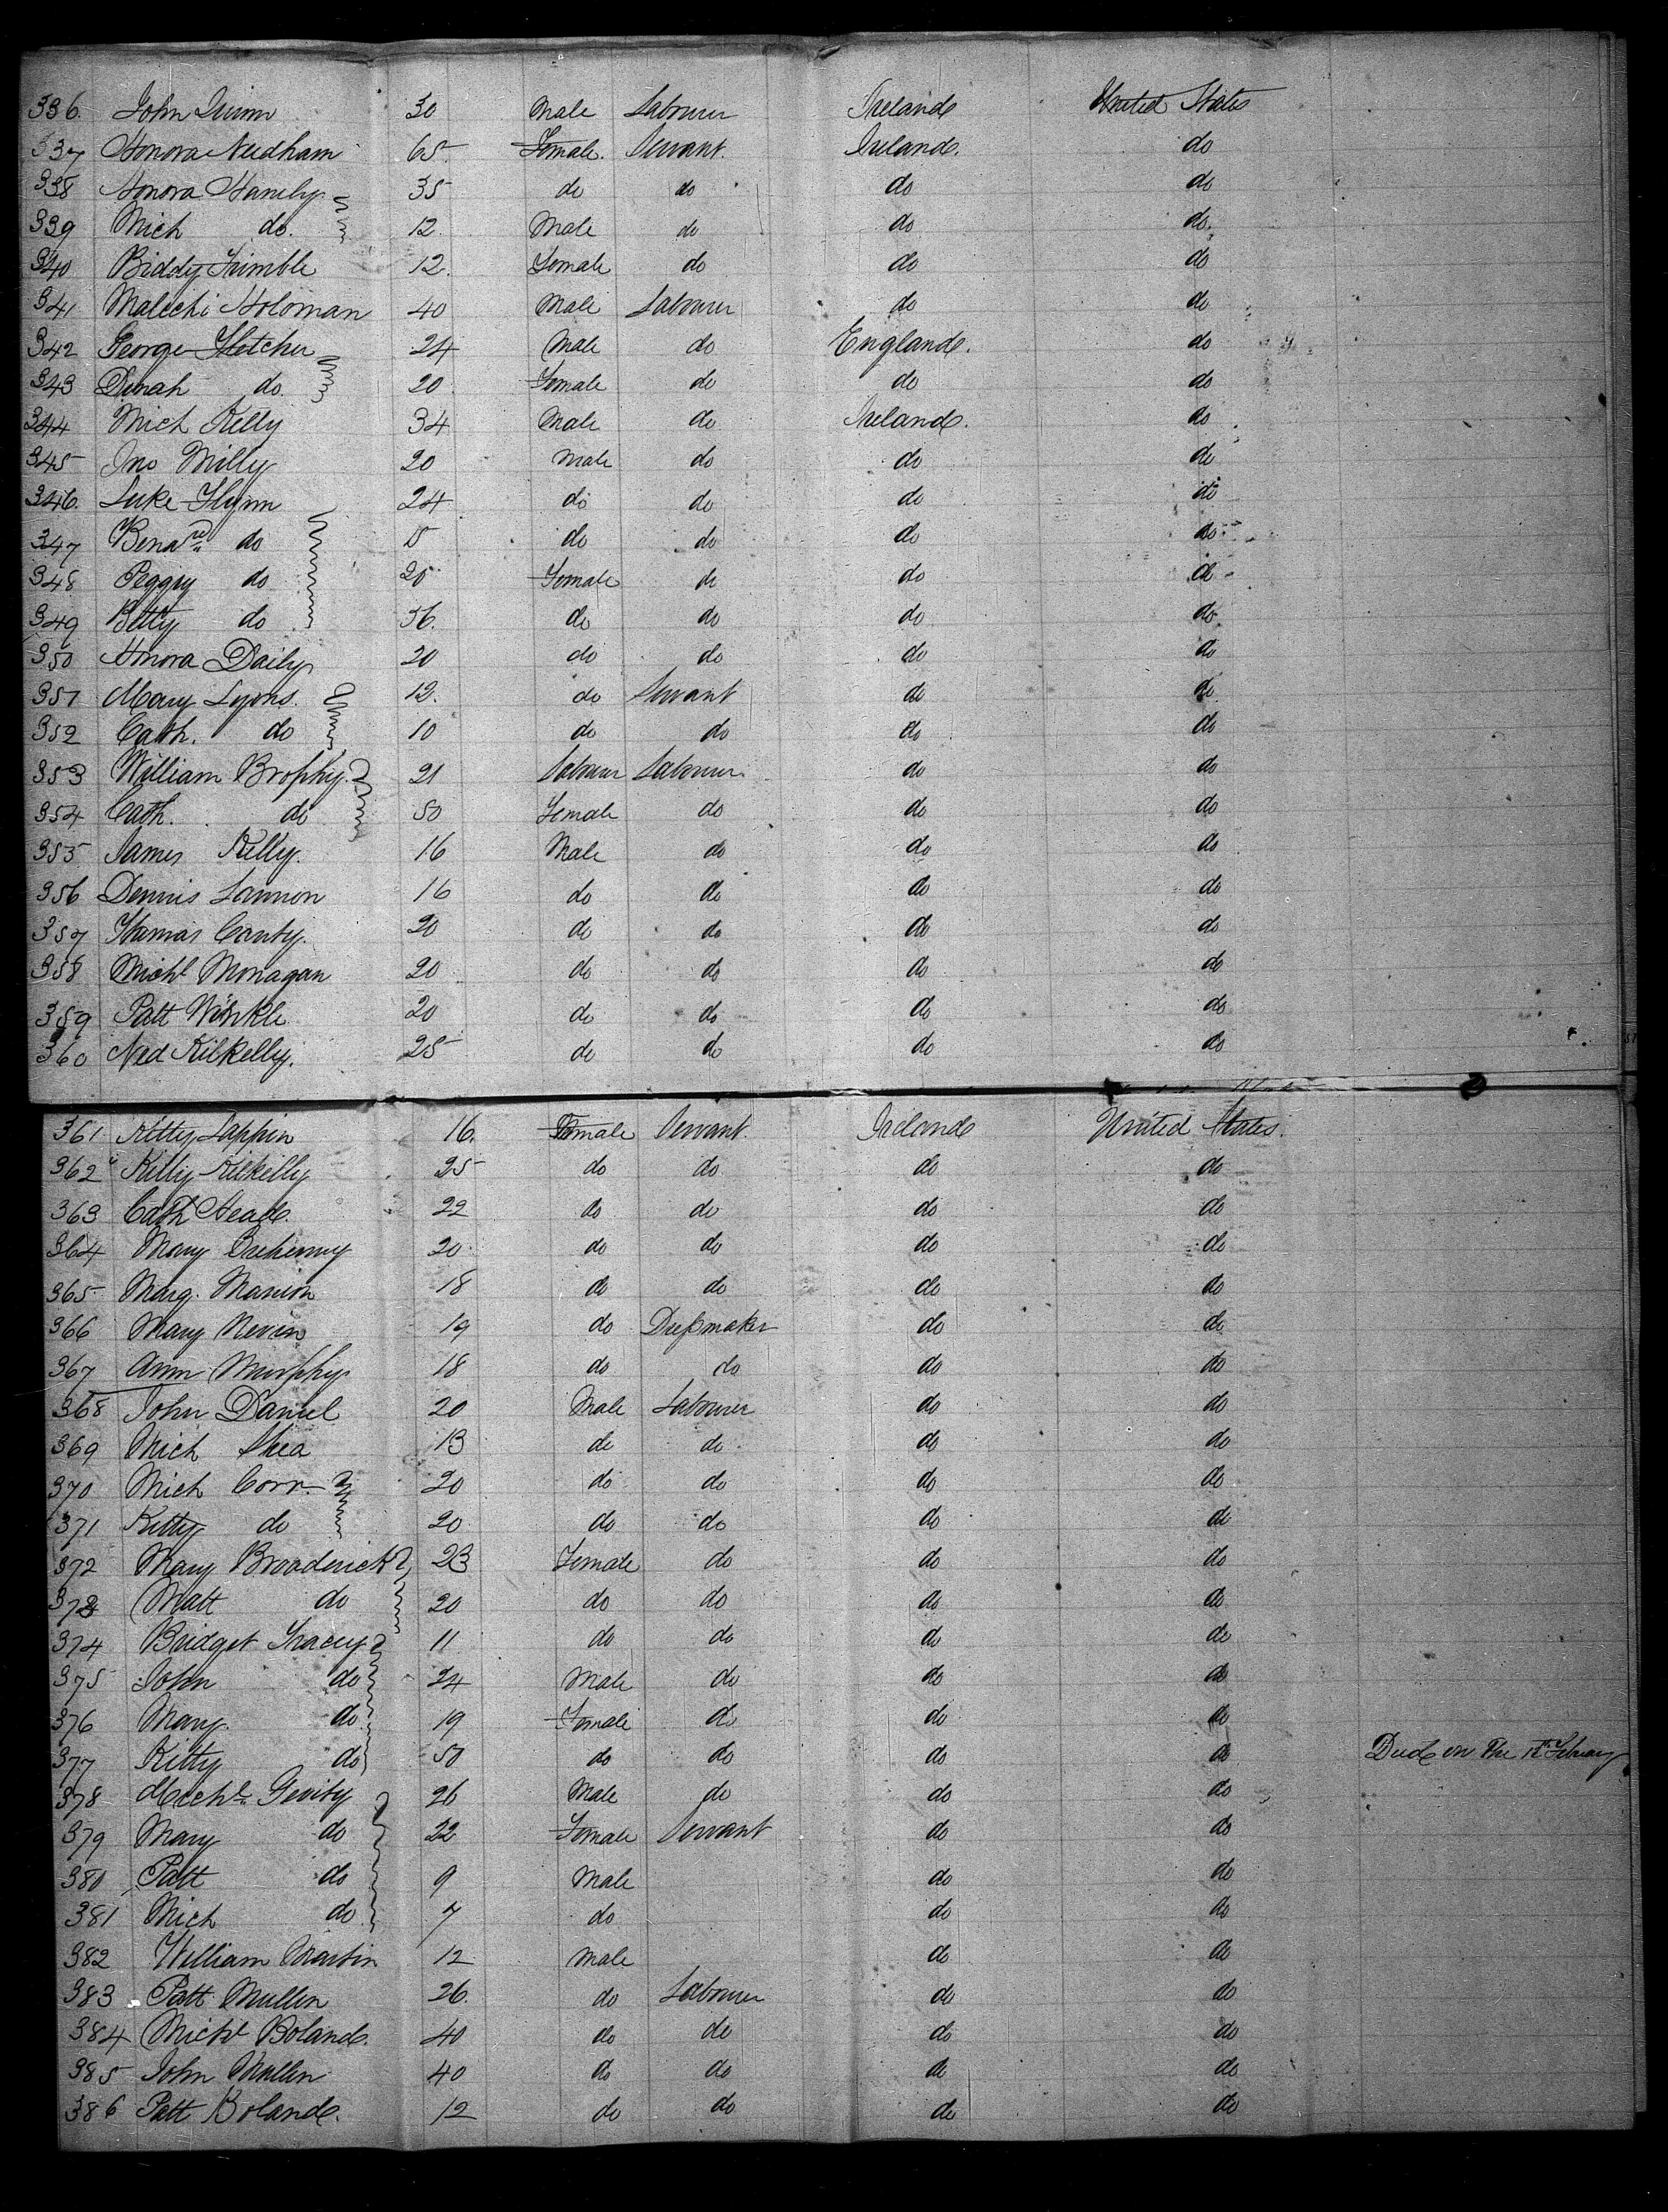 336. John Quinn 30 Male Labourer Ireland United States
337 Honora Needham 65. Female. Servant. Ireland. do
338 Honora Hansby 35 do do do do
339 Mich do. 12. Male do do do
340 Biddy Trimble 12. Female do do do
341 Malechi Holoman 40 Male Labourer do do
342 George Fletcher 24 Male do England. do
343 Dinah do. 20 Female do do do
344 Mich Kelly 34 Male do Ireland. do
345 Jno Milly 20 Male do do do
346. Luke Flynn 24 do do do do
347 do do do do do
348 Peggy do 20 Female do do do
349 Betty do 36. do do do do
350 Honora Daily 20 do do do do
351 Mary Lyons. 12. do Servant do do
352 Cath. do 10 do do do do
353 William Brophy. 21 Labourer Labourer do do
354 Cath. do 50 Female do do do
355 James Kelly. 16 Male do do do
356 Dennis Lannon 16 do do do do
357 Thomas Canty. 20 do do do do
358 Michl Monagan 20 do do do do
359 Patt Winkle 20 do do do do
360 Ned Kilkelly. 25 do do do do
361 Kitty Lappin 16. Female Servant. Ireland United States.
362 Kitty Kilkelly 25 do do do do
363 Cath Head. 22 do do do do
364 Mary Breheny 20 do do do do
365 Marg. Manion 18 do do do do
366 Mary Nevin 19 do Dressmaker do do
367 Ann Murphy 18 do do do do
368 John Daniel 20 Male Labourer do do
369 Mich Shea 13 do do do do
370 Mich Corr 20 do do do do
371 Kitty do 20 do do do do
372 Mary Broaderick 23 Female do do do
373 Matt do 20 do do do do
374 Bridget Tracey 11 do do do do
375 John do 24 Male do do do
376 Mary do 19 Female do do do
377 Kitty do 50 do do do do Died on the February
378 Michl. Gevity 26 Male do do do
379 Mary do 22 Female Servant do do
380 Patt do 9 Male do do
381 Mich do 7 do do do
382 William Martin 12 Male do do
383 Patt Mullen 26. do Labourer do do
384 Michl Boland. 40 do do do do
385 John Mullen 40 do do do do
386 Patt Boland. 12 do do do do